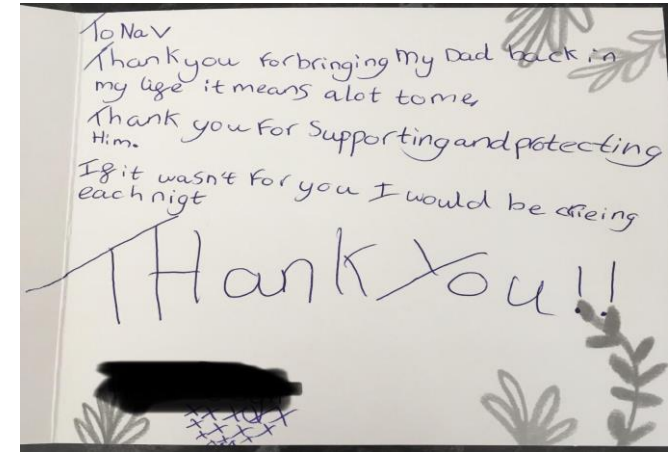 To Nav
Thank you for bringing My Dad back in
my life it means alot to me,
Thank you For Supporting and protecting
Him.
If it wasn't For you I would be crieing
each nigt
THank You!!
xxxxx
xxxxx